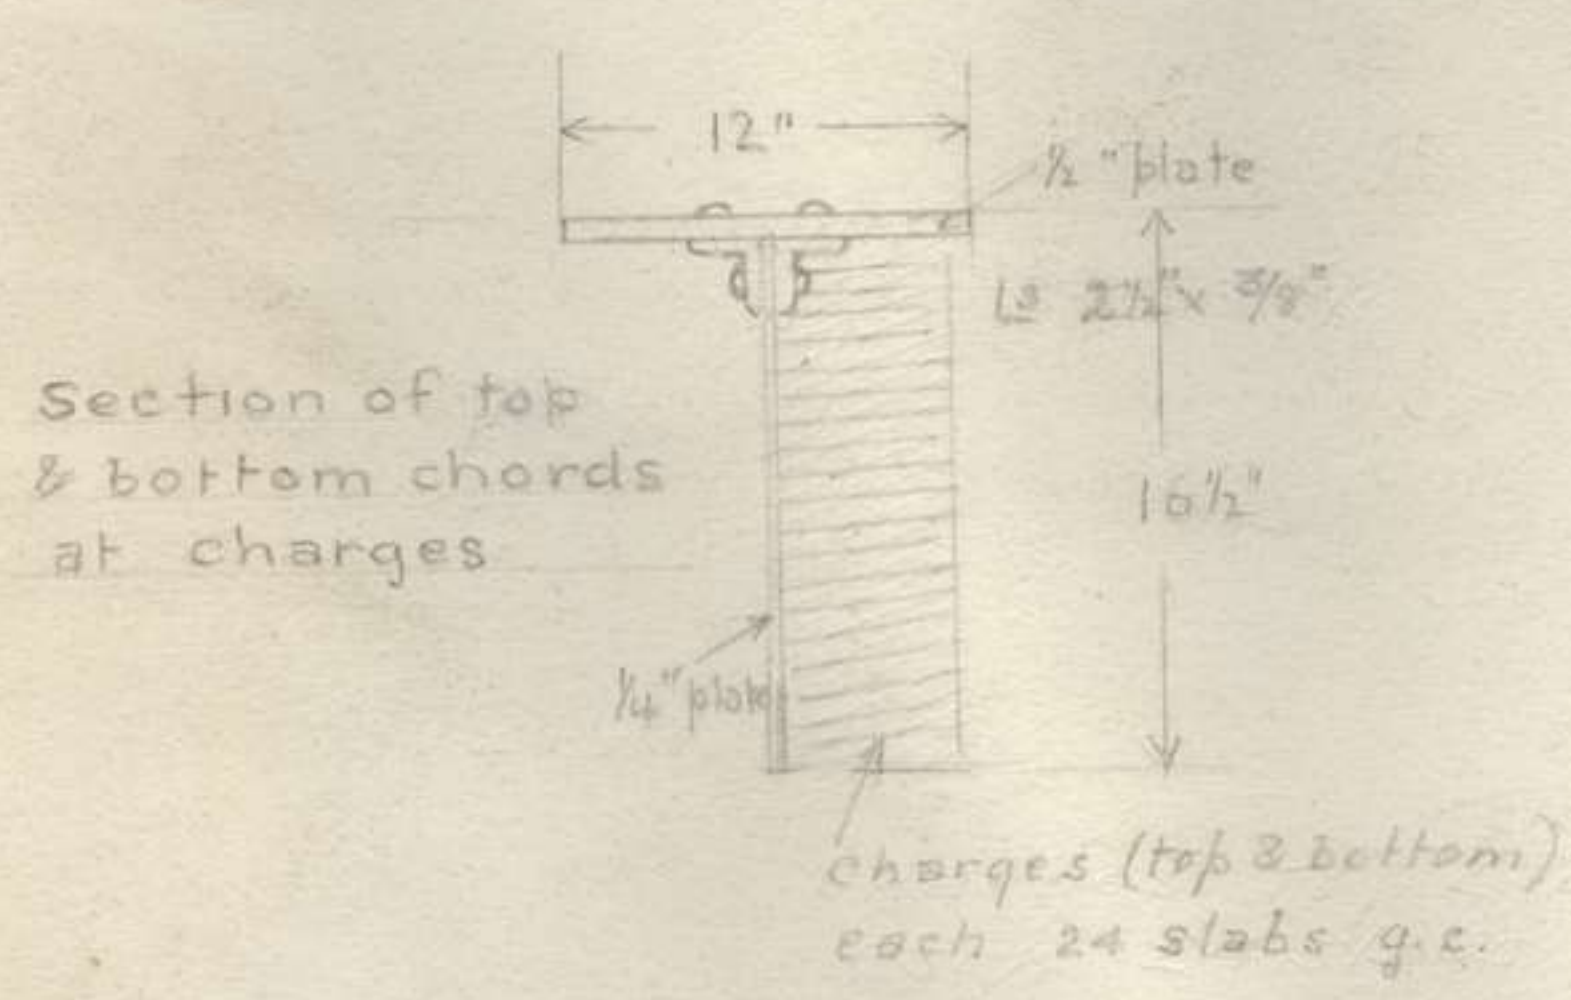 12"
1/2 "plate
Ls 2 1/2" x 3/8"
Section of top
& bottom chords
at charges
16 1/2"
1/4" plate
charges (top & bottom)
each 24 slabs g.c.